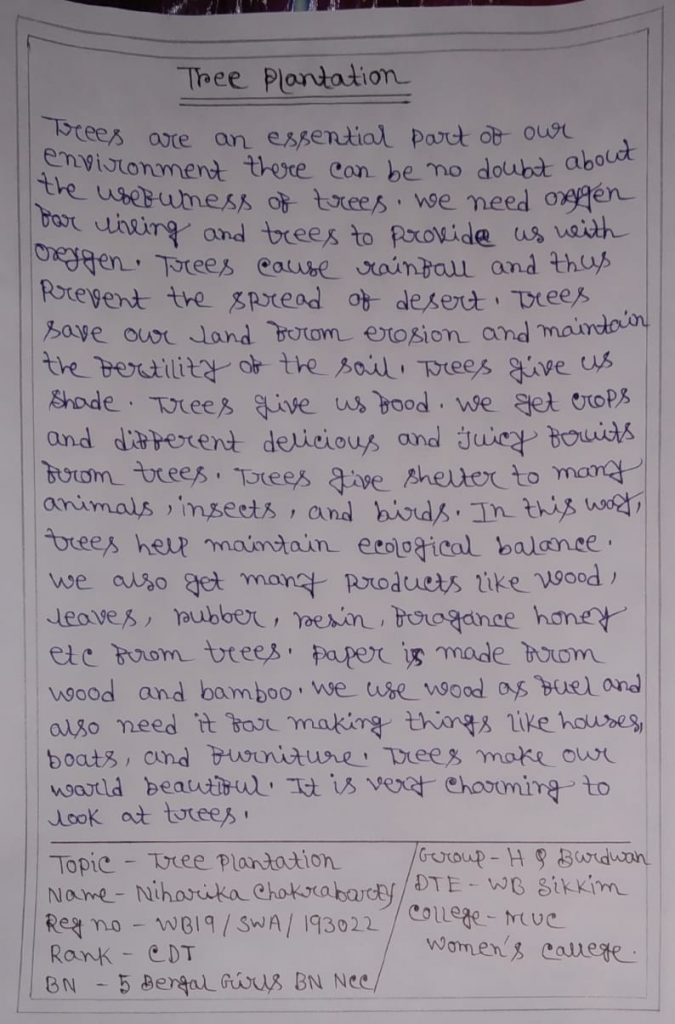 Tree Plantation
Trees are an essential part of our
environment there can be no doubt about
the usefulness of trees. we need oxygen
for living and trees to provide us with
oxygen. Trees cause rainfall and thus
prevent the spread of desert. Trees
save our land from erosion and maintain
the fertility of the soil. Trees give us
shade. Trees give us food. we get crops
and different delicious and juicy fruits
from trees. Trees give shelter to many
animals, insects, and birds. In this way,
trees help maintain ecological balance.
we also get many products like wood,
leaves, rubber, resin, fragance honey
etc from trees. paper is made from
wood and bamboo. we use wood as fuel and
also need it for making things like houses,
boats, and furniture. Trees make our
world beautiful. It is very charming to
look at trees.
Topic - Tree plantation
Name - Niharika Chakrabarty
Reg no - WB19/SWA/193022
Rank - CDT
BN - 5 Bengal Girls BN NCC
Group - H Q Burdwan
DTE - WB Sikkim
College - MUC
Women's College.